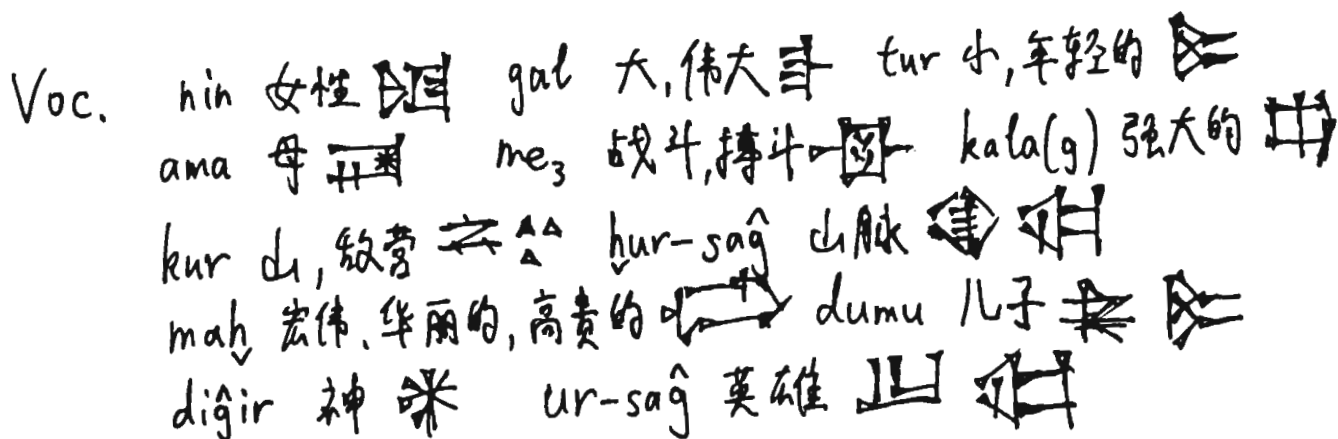 Voc. nin 女性 𒎏 gal 大,伟大 𒃲 tur 小,年轻的 𒌉
ama 母 𒂼 me₃ 战斗,搏斗 kala(g) 强大的 𒆗
kur 山,敌营 𒆳 ḫur-saĝ 山脉 𒄯 𒊕
maḫ 宏伟、华丽的,高贵的 𒈤 dumu 儿子 𒌉
diĝir 神 𒀭 ur-saĝ 英雄 𒌨 𒊕